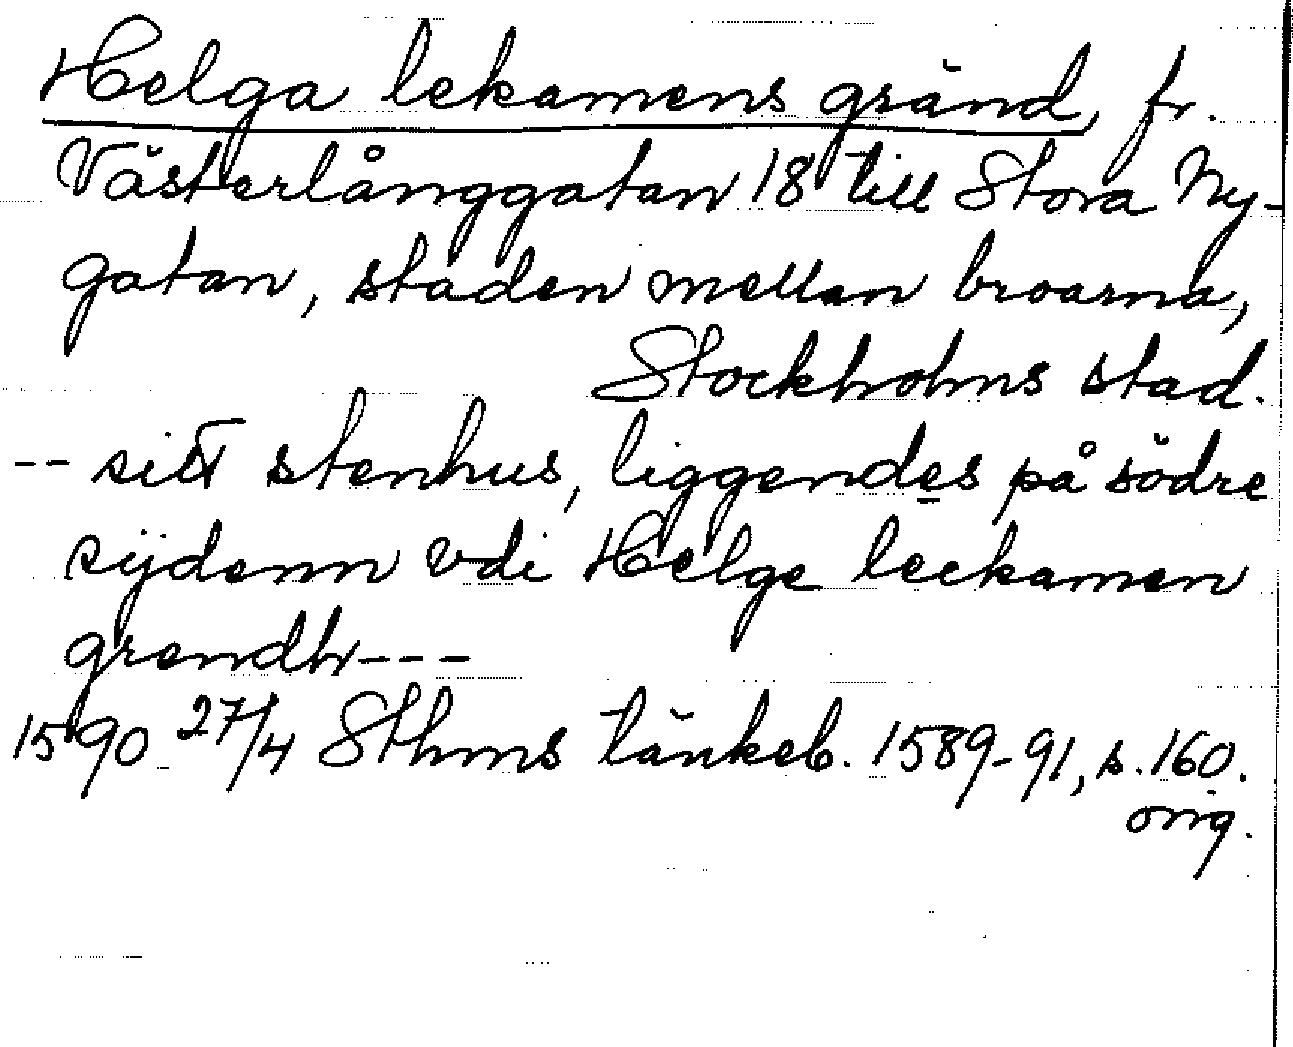 Helga lekamens gränd, fr.
Västerlånggatan 18 till Stora Ny-
gatan, staden mellan broarna,
Stockholms stad.
-- sitt stenhus, liggendes på södre
sijdenn vdi Helge leekamen
grendh---
1590 27/4 Sthms tänkeb. 1589-91, s. 160.
orig.